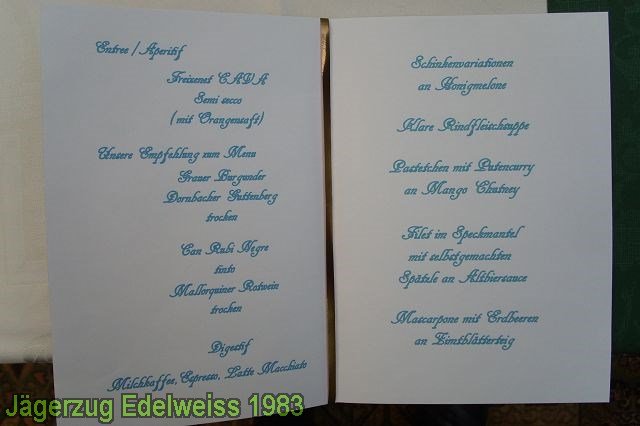 Entree / Aperitif
Freixenet CAVA
Semi secco
(mit Orangensaft)
Unsere Empfehlung zum Menu
Grauer Burgunder
Dornbacher Guttenberg
trocken
Can Rubi Negre
tinto
Mallorquiner Rotwein
trocken
Digestif
Milchkaffee, Espresso, Latte Macchiato
Schinkenvariationen
an Honigmelone
Klare Rindfleischsuppe
Pastetchen mit Putencurry
an Mango Chutney
Filet im Speckmantel
mit selbstgemachten
Spätzle an Altbiersauce
Mascarpone mit Erdbeeren
an Zimtblätterteig
Jägerzug Edelweiss 1983